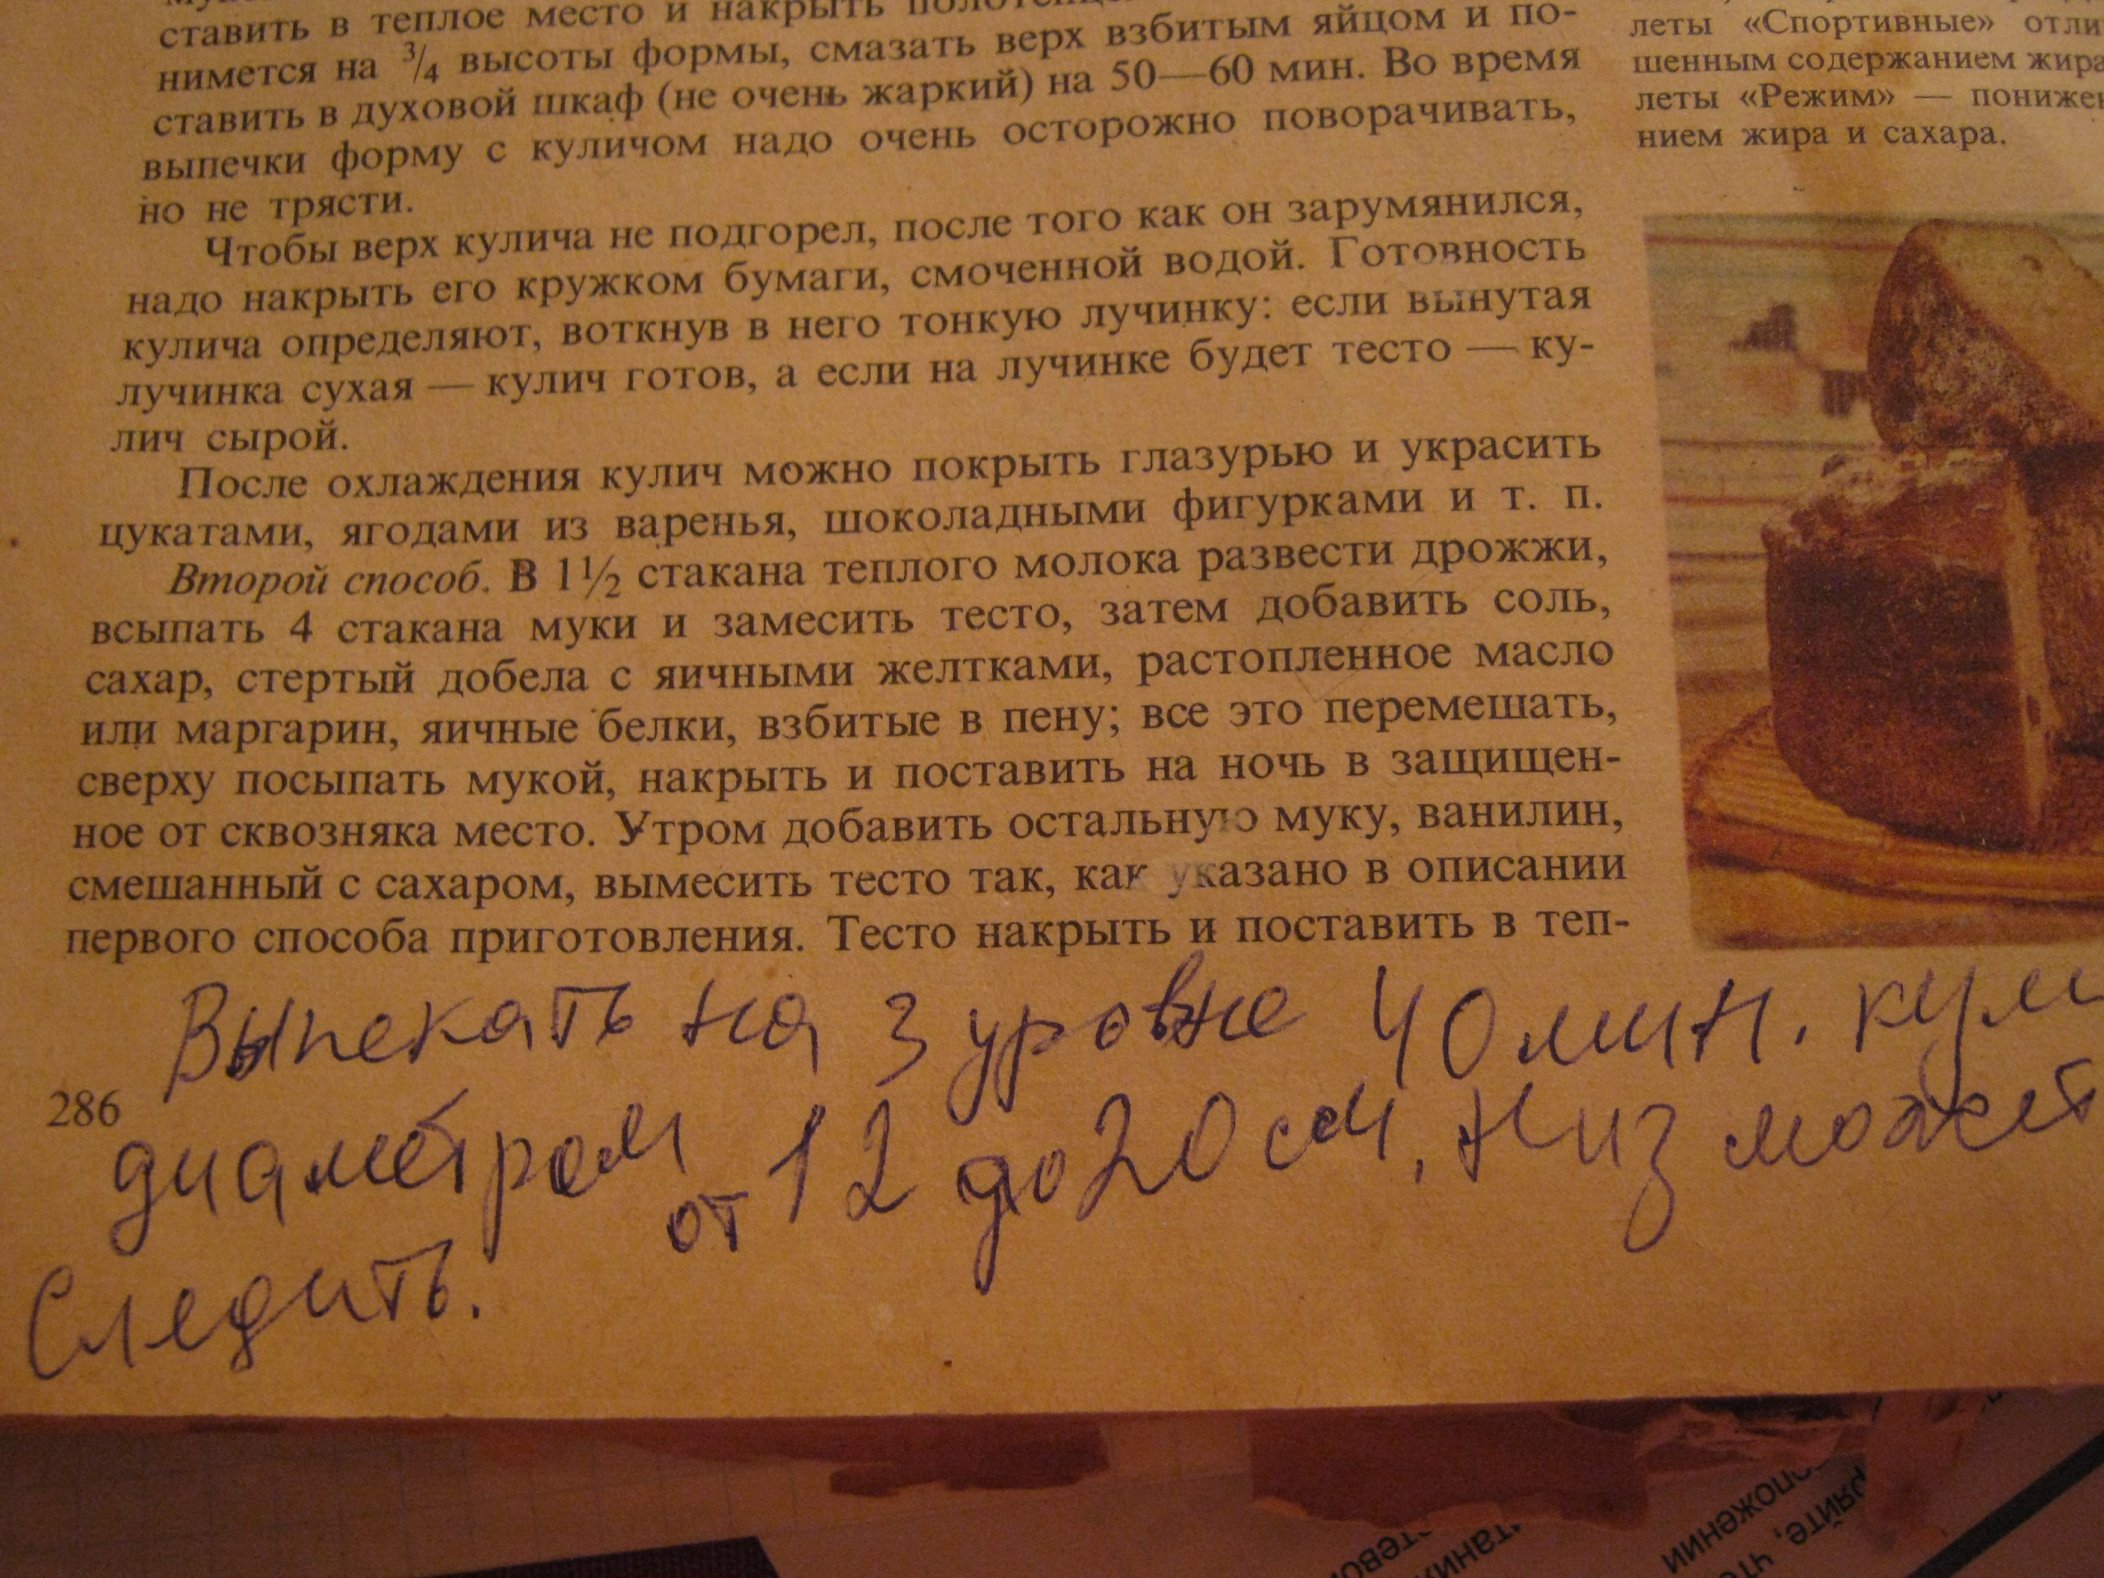 ставить в теплое место и накрыть
нимется на 3/4 высоты формы, смазать верх взбитым яйцом и по-
ставить в духовой шкаф (не очень жаркий) на 50—60 мин. Во время
выпечки форму с куличом надо очень осторожно поворачивать,
но не трясти.
Чтобы верх кулича не подгорел, после того как он зарумянился,
надо накрыть его кружком бумаги, смоченной водой. Готовность
кулича определяют, воткнув в него тонкую лучинку: если вынутая
лучинка сухая — кулич готов, а если на лучинке будет тесто — ку-
лич сырой.
После охлаждения кулич можно покрыть глазурью и украсить
цукатами, ягодами из варенья, шоколадными фигурками и т. п.
Второй способ. В 1 1/2 стакана теплого молока развести дрожжи,
всыпать 4 стакана муки и замесить тесто, затем добавить соль,
сахар, стертый добела с яичными желтками, растопленное масло
или маргарин, яичные белки, взбитые в пену; все это перемешать,
сверху посыпать мукой, накрыть и поставить на ночь в защищен-
ное от сквозняка место. Утром добавить остальную муку, ванилин,
смешанный с сахаром, вымесить тесто так, как указано в описании
первого способа приготовления. Тесто накрыть и поставить в теп-
Выпекать на 3 уровне 40 мин. кули
286
диаметром от 12 до 20 см, низ может
Следить.
леты «Спортивные» отли
шенным содержанием жира
леты «Режим» — понижен
нием жира и сахара.